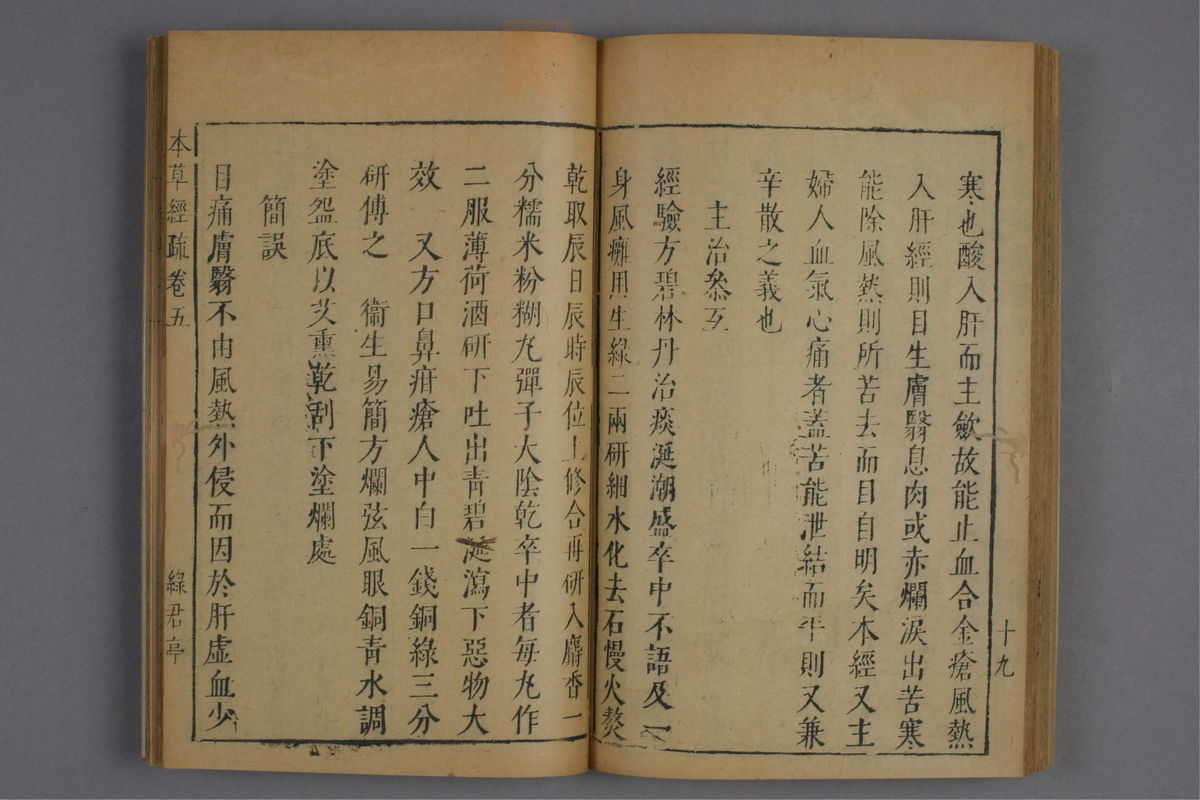 十九
寒也酸入肝而主斂故能止血合金瘡風熱
入肝經則目生膚翳息肉或赤爛淚出苦寒
能除風熱則所苦去而目自明矣本經又主
婦人血氣心痛者蓋苦能泄結而平則又兼
辛散之義也
主治叅互
經驗方碧林丹治痰涎潮盛卒中不語及一
身風癱用生綠二兩研細水化去石慢火熬
乾取辰日辰時辰位上修合再研入麝香一
分糯米粉糊丸彈子大陰乾卒中者每丸作
二服薄荷酒研下吐出青碧涎瀉下惡物大
效　又方口鼻疳瘡人中白一錢銅綠三分
研傅之　衞生易簡方爛弦風眼銅青水調
塗盌底以艾熏乾刮下塗爛處
簡誤
目痛膚翳不由風熱外侵而因於肝虛血少
本草經疏卷五
綠君亭